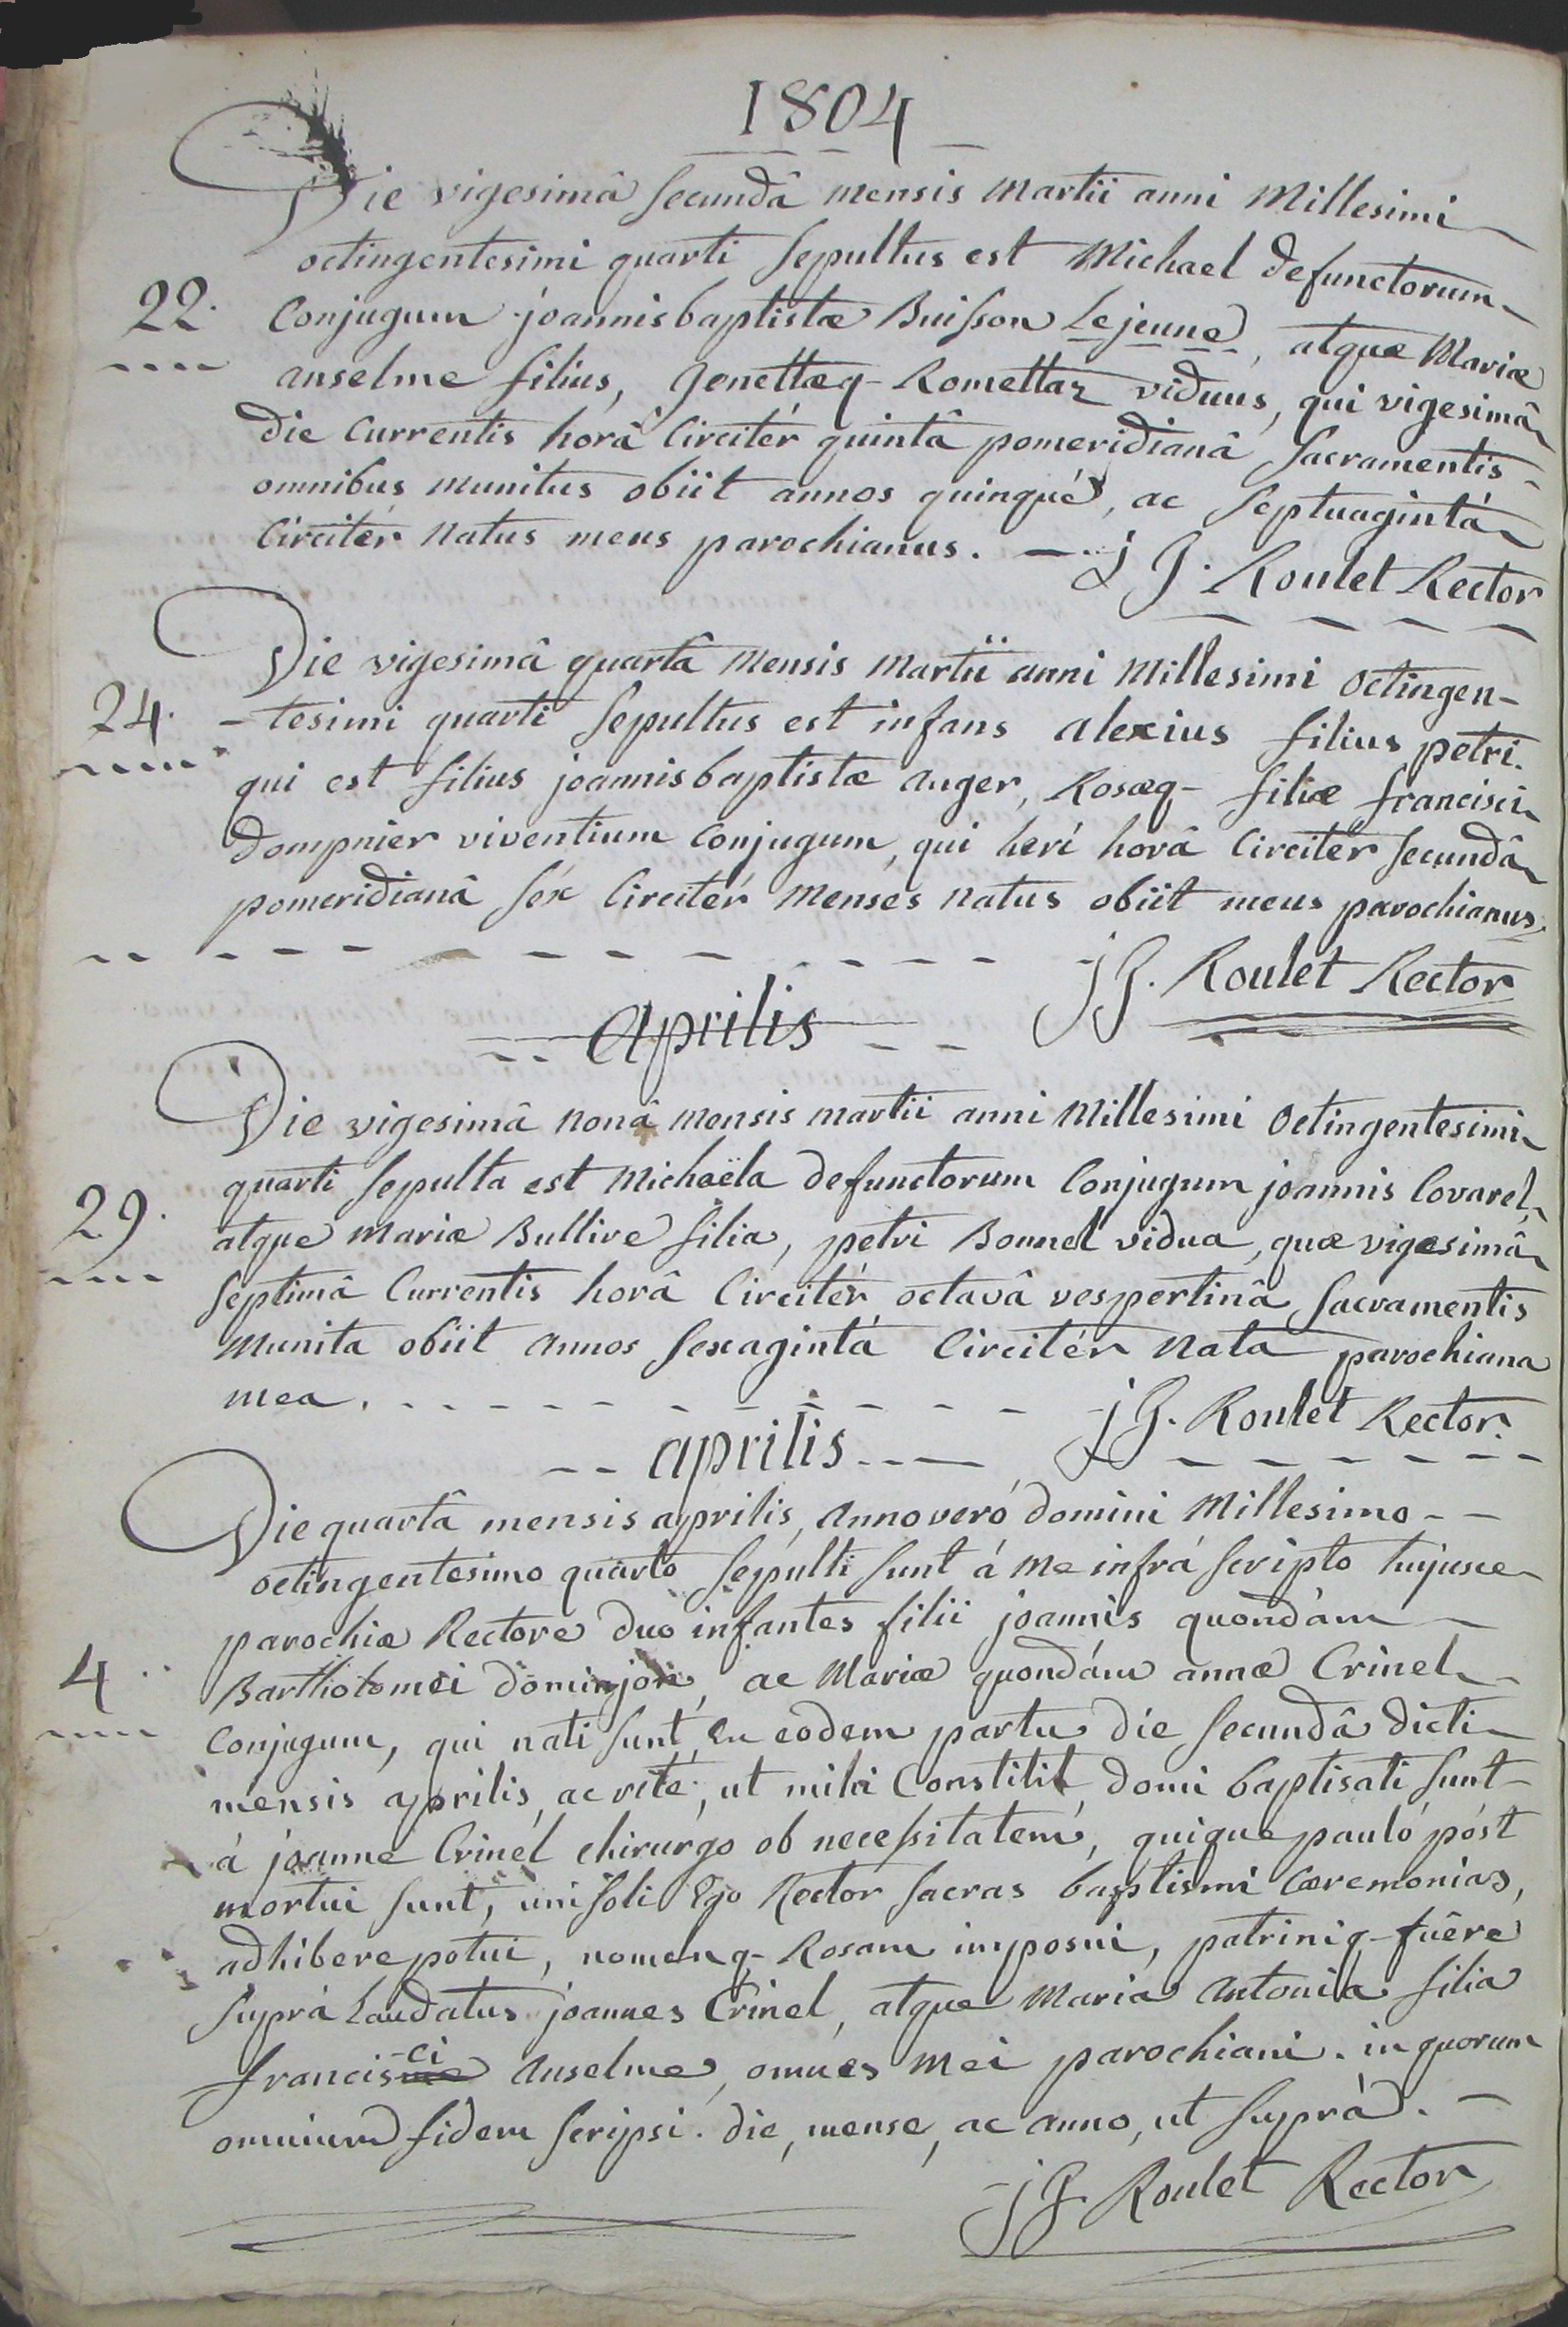 1804
Die vigesimâ secundâ mensis martii anni Millesimi
octingentesimi quarti sepultus est Michael defunctorum
22. Conjugum joannisbaptistæ Buisson Lejeune, atque Mariæ
anselme filius, Jenettæq- Romettaz viduus, qui vigesimâ
die Currentis horâ Circitér quintâ pomeridianâ Sacramentis
omnibus munitus obiit annos quinqué, ac septuagintá
Circitér natus meus parochianus. — j J. Roulet Rector
Die vigesimâ quartâ mensis martii anni Millesimi octingen-
24. -tesimi quarti sepultus est infans alexius filius petri
qui est filius joannisbaptistæ auger, Rosæq- filiæ francisci
dompnier viventium Conjugum, qui herí horâ Circiter secundâ
pomeridianâ séx Circitér menses natus obiit meus parochianus.
j J. Roulet Rector
aprilis
Die vigesimâ nonâ mensis martii anni Millesimi octingentesimi
quarti sepulta est Michaëla defunctorum Conjugum joannis Covarel
29. atque mariæ Bullive filia, petri Bonnel vidua, quæ vigesimâ
septimâ Currentis horâ Circitér octavâ vespertinâ Sacramentis
munita obiit annos sexagintá Circitér nata parochiana
mea. j J. Roulet Rector.
aprilis
Die quartâ mensis aprilis, anno veró domini Millesimo
octingentesimo quarto sepulti sunt á me infrá scripto hujusce
parochiæ Rectore duo infantes filii joannis quondám
4 Bartholomei dominjon, ac Mariæ quondám annæ Crinel
Conjugum, qui nati sunt eu eodem partu die secundâ dicti
mensis aprilis, ac rité, ut mihi Constitit, domi baptisati sunt
á joanne Crinél chirurgo ob necessitatem, quique pauló póst
mortui sunt, uni soli Ego Rector sacras baptismi Cæremonias,
adhibere potui, nomenq- Rosam imposui, patriniq- fuêre
suprá laudatus joannes Crinel, atque Maria antonia filia
francis-ci anselme, omnes mei parochiani. in quorum
omnium fidem scripsi. die, mense, ac anno, ut suprá. —
j J. Roulet Rector